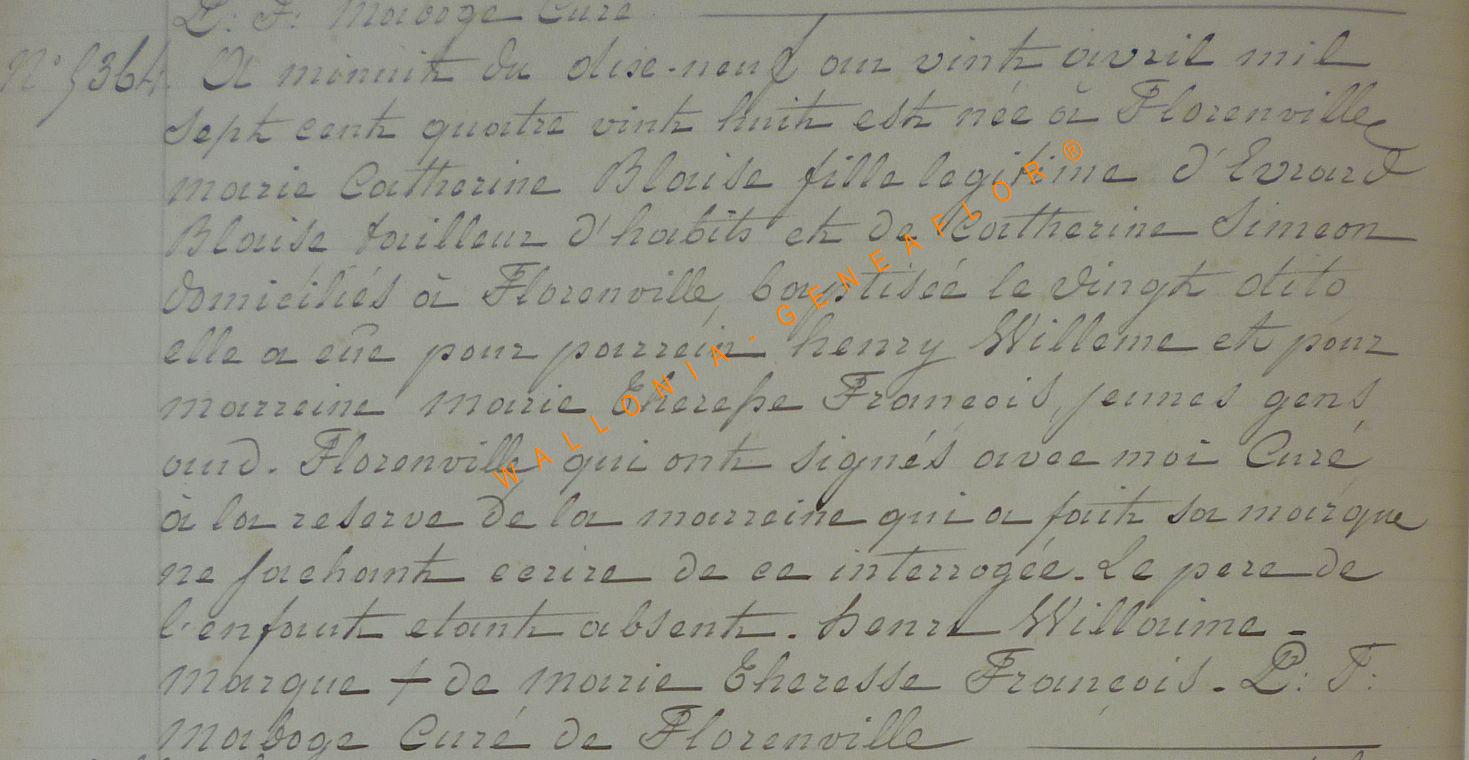 P: F: Maboge Curé
N° 5364. A minuit du dise-neuf au vint avril mil
sept cent quatre vint huit est née à Florenville
marie Catherine Blaise fille legitime d'Evrard
Blaise tailleur d'habits et de Catherine Simeon
domiciliés à Florenville, baptisée le vingt dito
elle a eüe pour parrein henry Willeme et pour
marreine marie Therese François jeunes gens
aud. Florenville qui ont signés avec moi Curé
à la reserve de la marreine qui a fait sa marque
ne sachant ecrire de ce interrogée. Le pere de
l'enfant etant absent. henri Willaime -
Marque + de marie Theresse François. P: F:
Maboge Curé de Florenville
WALLONIA-GENEAFLOR®